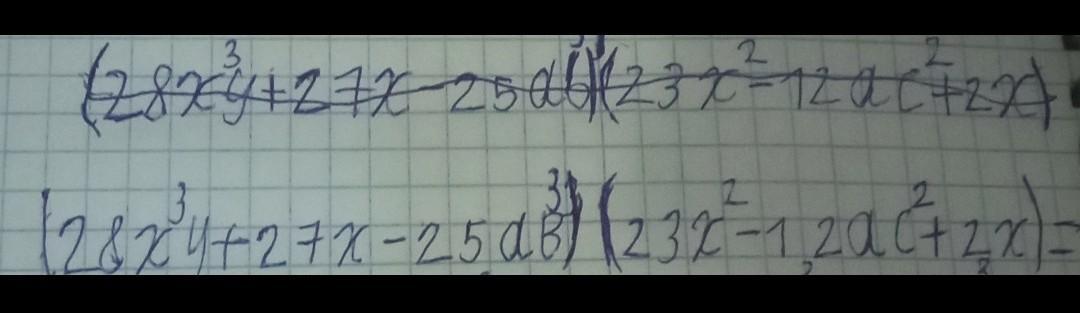 (28x³y+27x-25ab³)(23x²-12ac²+2x)
(28x³y+27x-25ab³)(23x²-1,2ac²+2,x)=